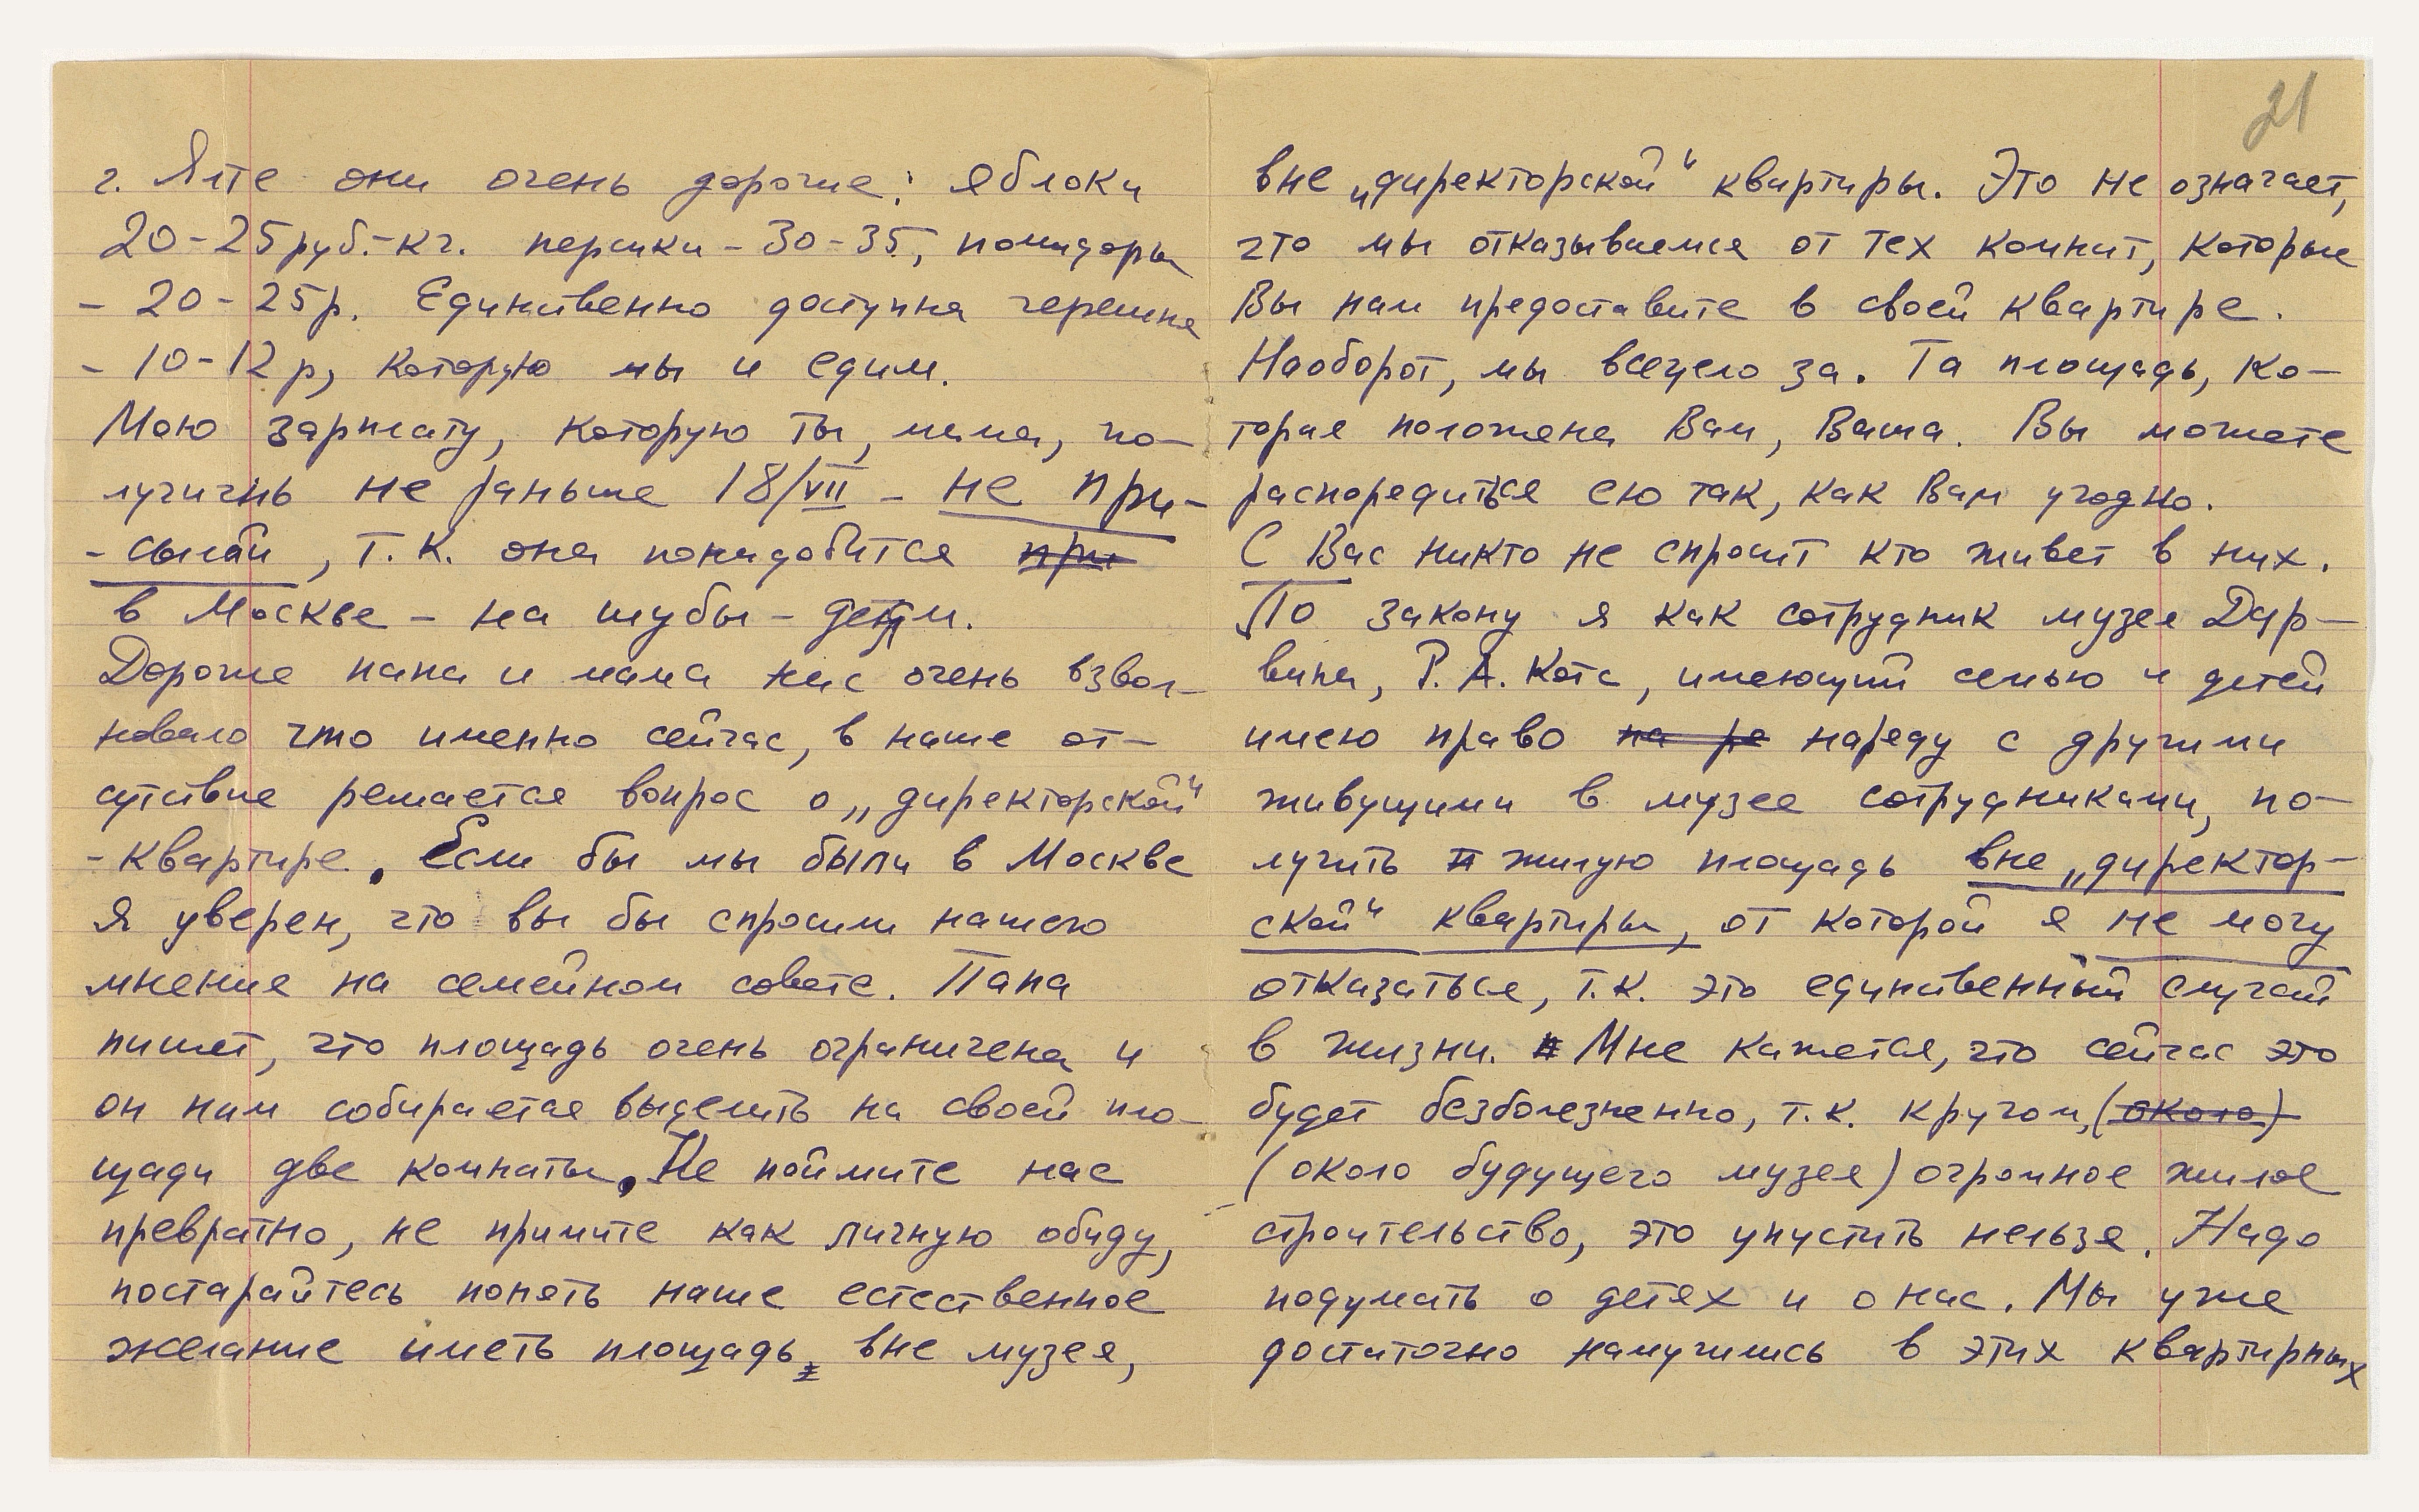 г. Ялте они очень дорогие: яблоки
20-25 руб.-кг. персики - 30-35, помидоры
- 20-25р. Единственно доступна черешня
- 10-12 р, которую мы и едим.
Мою зарплату, которую ты, мама, по-
лучишь не раньше 18/VII - не при-
- сылай, т.к. она понадобится при
в Москве - на шубы - детям.
Дорогие папа и мама нас очень взвол-
новало что именно сейчас, в наше от-
сутствие решается вопрос о „директорской"
- квартире. Если бы мы были в Москве
я уверен, что вы бы спросили нашего
мнение на семейном совете. Папа
пишет, что площадь очень ограничена и
он нам собирается выделить на своей пло-
щади две комнаты. Не поймите нас
превратно, не примите как личную обиду,
постарайтесь понять наше естественное
желание иметь площадь вне музея,
21
вне „директорской" квартиры. Это не означает,
что мы отказываемся от тех комнат, которые
Вы нам предоставите в своей квартире.
Наоборот, мы всецело за. Та площадь, ко-
торая положена Вам, Ваша. Вы можете
распорядиться ею так, как Вам угодно.
С Вас никто не спросит кто живет в них.
По закону я как сотрудник музея Дар-
вина, Р.А. Котс, имеющий семью и детей
имею право на ре наряду с другими
живущими в музее сотрудниками, по-
лучить п жилую площадь вне „директор-
ской" квартиры, от которой я не могу
отказаться, т.к. это единственный случай
в жизни. Мне кажется, что сейчас это
будет безболезненно, т.к. кругом, (около)
(около будущего музея) огромное жилое
строительство, это упустить нельзя. Надо
подумать о детях и о нас. Мы уже
достаточно намучились в этих квартирных